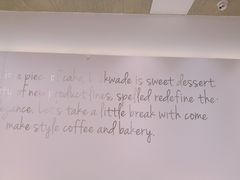 is a piece of cake, kwade is sweet dessert
of new product lines, spelled redefine the
Let's take a little break with come
make style coffee and bakery.